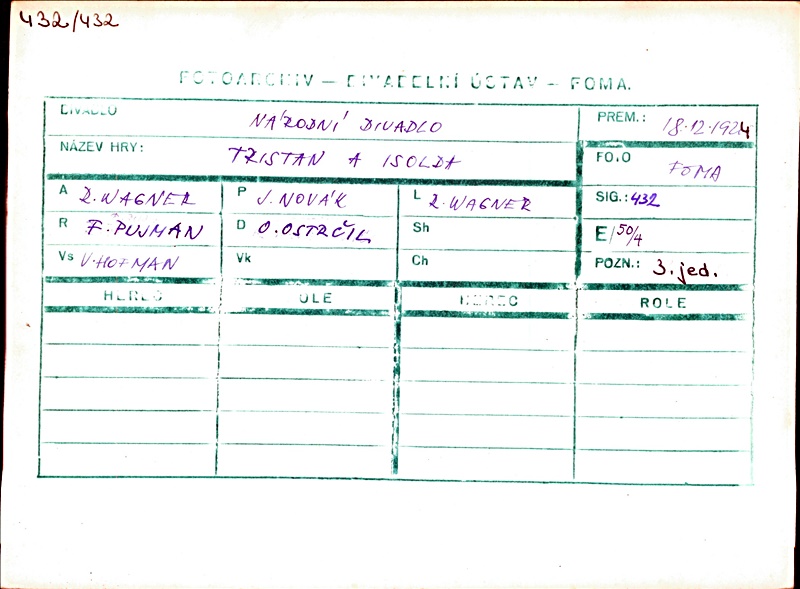 432/432
FOTOARCHIV — DIVADELNÍ ÚSTAV — FOMA.
DIVADLO NÁRODNÍ DIVADLO PREM.: 18.12.1924
NÁZEV HRY: TRISTAN A ISOLDA FOTO FOMA
A R. WAGNER P J. NOVÁK L R. WAGNER SIG.: 432
R F. PUJMAN D O. OSTRČIL Sh E/50/4
Vs V. HOFMAN Vk Ch POZN.: 3. jed.
HEREC ROLE HEREC ROLE